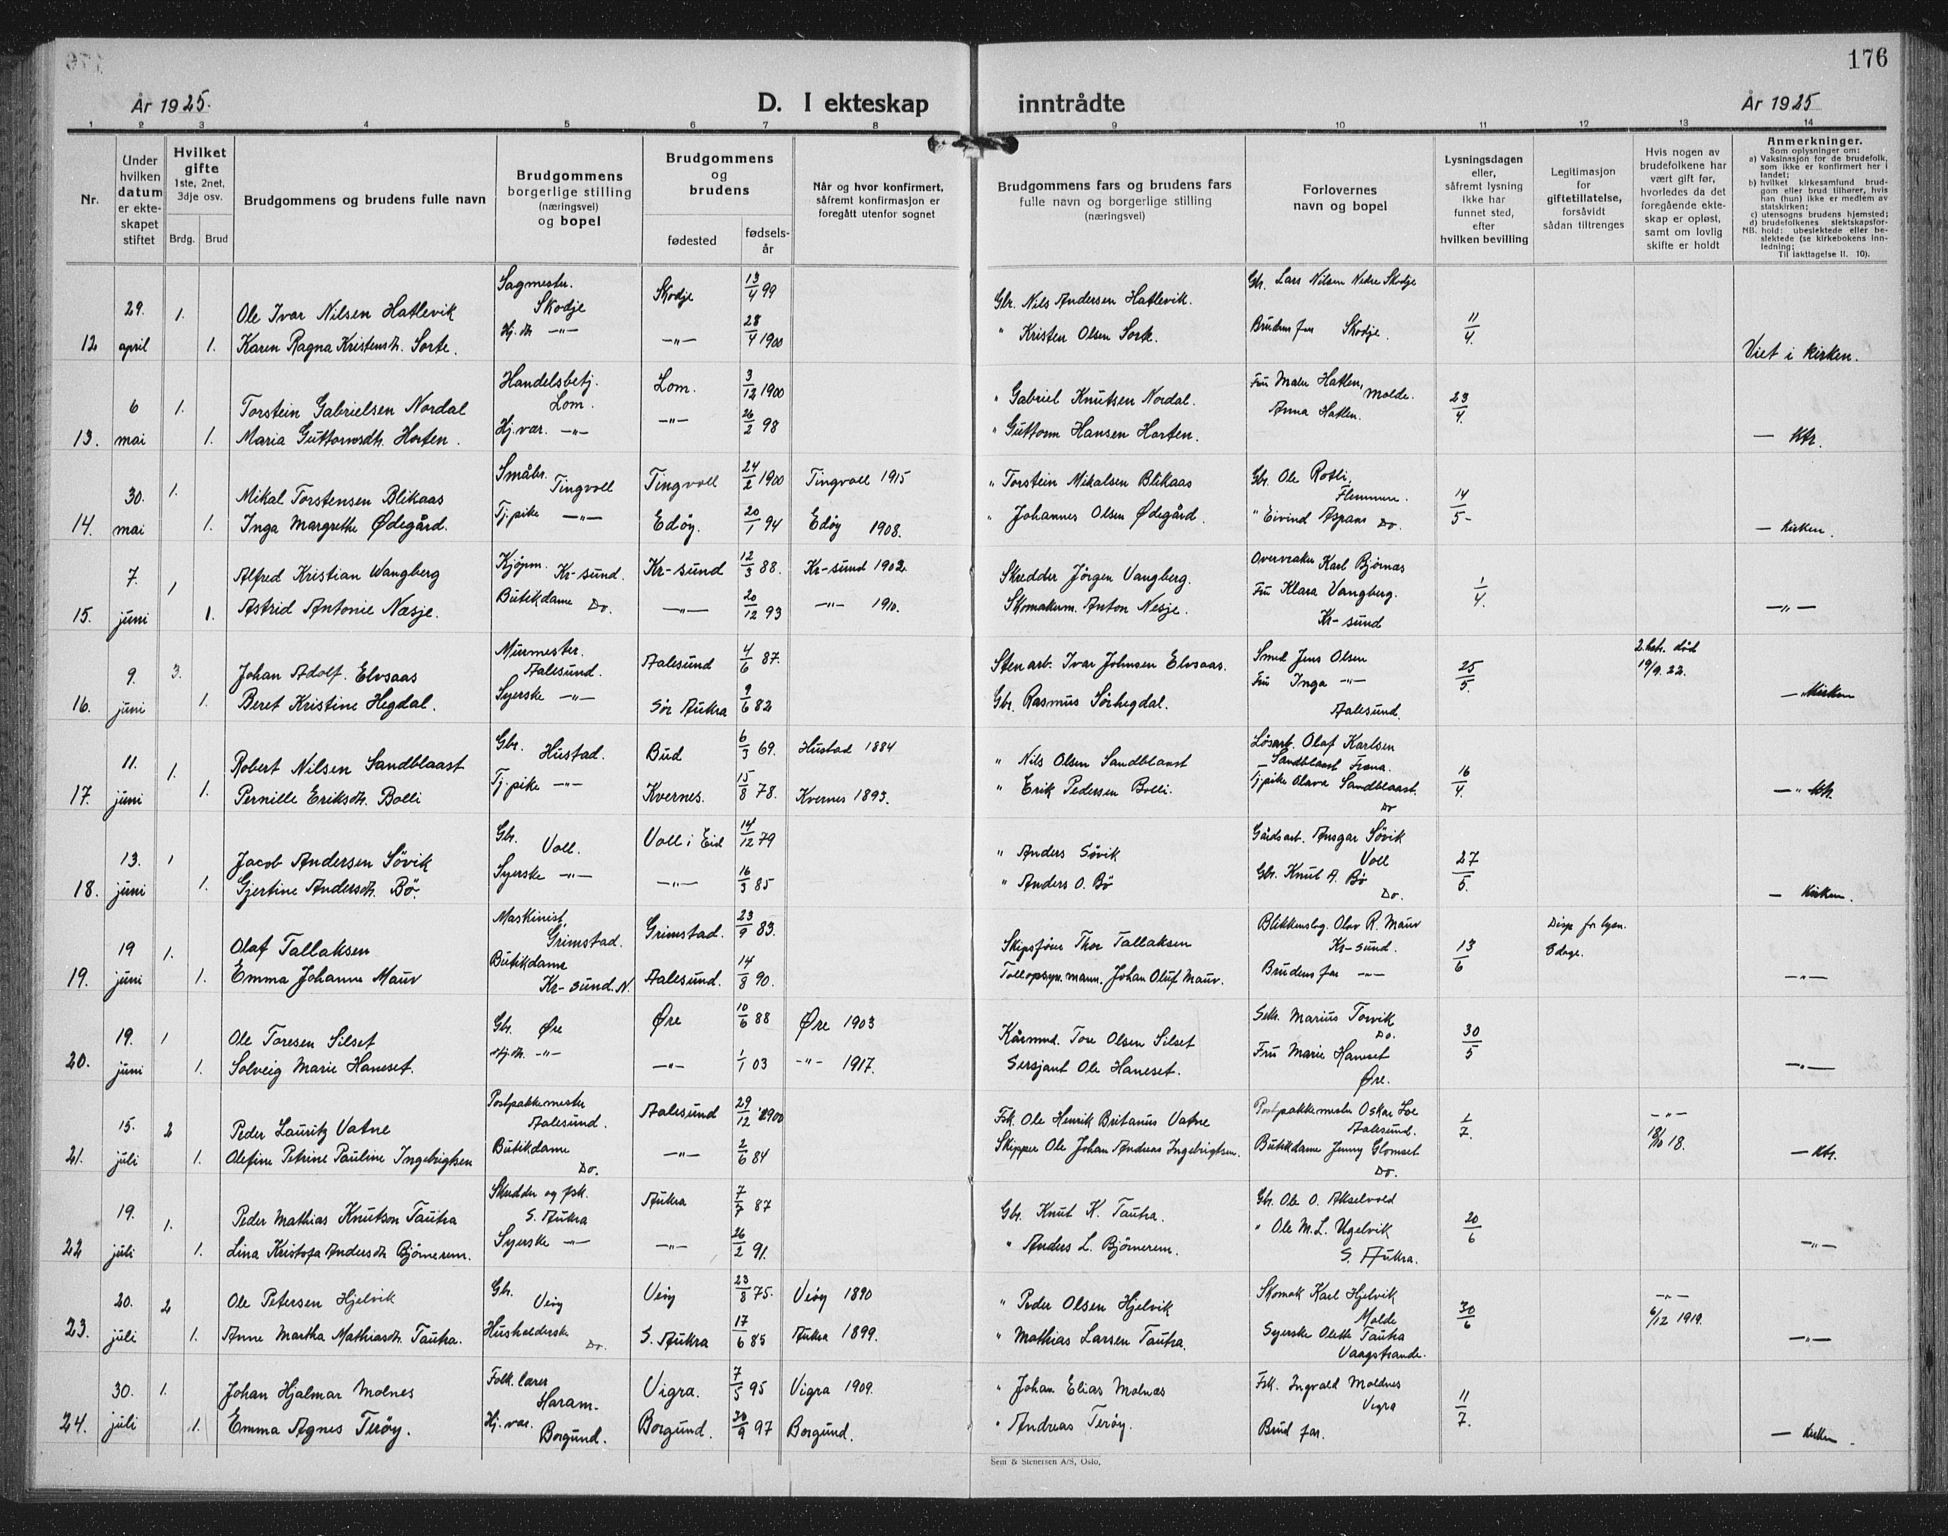 176
År 1925. D. I ekteskap inntrådte År 1925
1 2 3 4 5 6 7 8 9 10 11 12 13 14
Nr.
Under hvilken datum er ekteskapet stiftet
Hvilket gifte
1ste, 2net, 3dje osv.
Brdg. Brud
Brudgommens og brudens fulle navn
Brudgommens borgerlige stilling (næringsvei) og bopel
Brudgommens og brudens
fødested
fødselsår
Når og hvor konfirmert, såfremt konfirmasjon er foregått utenfor sognet
Brudgommens fars og brudens fars fulle navn og borgerlige stilling (næringsvei)
Forlovernes navn og bopel
Lysningsdagen eller, såfremt lysning ikke har funnet sted, efter hvilken bevilling
Legitimasjon for giftetillatelse, forsåvidt sådan tiltrenges
Hvis nogen av brudefolkene har vært gift før, hvorledes da det foregående ekteskap er opløst, samt om lovlig skifte er holdt
Anmerkninger.
Som oplysninger om:
a) Vaksinasjon for de brudefolk, som ikke er konfirmert her i landet;
b) hvilket kirkesamfund brudgom eller brud tilhører, hvis han (hun) ikke er medlem av statskirken;
c) utensogns brudens hjemsted;
d) brudefolkenes slektskapsforhold: ubeslektede eller beslektede (se kirkebokens innledning;
NB. Til iakttagelse II. 10).
12 29. april 1. Ole Ivar Nilsen Hatlevik Sagmester. Skodje Skodje 13/4 99 Gbr. Nils Andersen Hatlevik. Gbr. Lars Nilsen Nedre Skodje
1. Karen Ragna Kristensdt. Sorte. Hj. dt. -"- -"- 28/4 1900 " Kristen Olsen Sorte. Brudens far Skodje. 11/4. Viet i kirken.
13. 6 mai 1. Torstein Gabrielsen Nordal Handelsbetj. Lom. Lom. 3/12 1900 " Gabriel Knutsen Nordal. Fru Malen Hatlen, Molde. 23/4
1. Maria Guttormsdt. Horten. Hj. vær. -"- -"- 26/2 98 " Guttorm Hansen Horten. Anna Hatlen. — Ktr.
14. 30. mai 1. Mikal Torstensen Blikaas Småbr. Tingvoll Tingvoll 24/2 1900 Tingvoll 1915 " Torstein Mikalsen Blikaas Gbr. Ole Rotli, Flemmen. 14/5
1. Inga Margrethe Ødegård. Tj. pike -"- Edøy. 20/1 94 Edøy 1908. " Johannes Olsen Ødegård. " Eivind Aspaas Do. — Kirken.
15. 7. juni 1 Alfred Kristian Wangberg Kjøpm. Kr-sund. Kr-sund 12/3 88. Kr-sund 1902 Skredder Jørgen Vangberg. Overvraker Karl Bjørnæs 1/4.
1. Astrid Antonie Næsje. Butikdame Do. -"- 20/12 93 -"- 1910. Skomakerm. Anton Nesje. Fru Klara Vangberg. Kr-sund -"-
16. 9. juni 3. Johan Adolf. Elvsaas Murmester. Aalesund. Aalesund 4/6 87. Stenarb. Ivar Johnsen Elvsaas. Smed Jens Olsen 25/5. 2. hst. død 19/9. 22.
1. Beret Kristine Hegdal. Syerske -"- Sør Aukra 9/6 82 Gbr. Rasmus Sørhegdal. Fru Inga -"- Aalesund. — Kirken
17. 11. juni 1. Robert Nilsen Sandblaast Gbr. Hustad. Bud 6/3 69. Hustad 1884 " Nils Olsen Sandblaast Løsarb. Olaf Karlsen Sandblaast Fræna. 16/4.
1. Pernille Eriksdt. Bolli Tj. pike -"- Kvernes. 15/8 78. Kvernes 1893. " Erik Pedersen Bolli. Tj. pike Olava Sandblaast. Do — " Ktr.
18. 13. juni 1 Jacob Andersen Søvik Gbr. Voll. Voll i Eid 14/12 79 " Anders Søvik Gårdsarb. Ansgar Søvik Voll 27/5.
1. Gjertine Andersdt. Bø. Syerske -"- -"- 16/3 85 " Anders O. Bø Gbr. Knut A. Bø Do. — Kirken.
19. 19 juni 1. Olaf Tallaksen Maskinist, Grimstad. Grimstad. 23/9 83. Skipsfører Thor Tallaksen Blikkenslag. Olav R. Maur Kr-sund. 13/6 Disp for lysn. 8 dage.
1. Emma Johanne Maur Butikdame Kr-sund. N. Aalesund. 14/8 90. Tollopsyn. mann. Johan Oluf Maur. Brudens far -"- -"-
20. 19. juni 1 Ole Toresen Silset Gbr. Øre Øre 10/6 88 Øre 1903 Kårmnd. Tore Olsen Silset Sekr. Marius Torvik Do. 30/5
1. Solveig Marie Haneset. Hj. dt. -"- -"- 1/1 03 -"- 1917. Sersjant Ole Haneset. Fru Marie Haneset Øre. -"-
21. 15. juli 2 Peder Lauritz Vatne Postpakkemester Aalesund. Aalesund 29/12 1900 Fsk. Ole Henrik Britanus Vatne Postpakkemester Oskar Loe Aalesund. 1/7. -"- 18/10 18.
1. Olefine Petrine Pauline Ingebrigtsen Butikdame Do. -"- 2/6 84 Skipper Ole Johan Andreas Ingebrigtsen. Butikdame Jenny Glomset Do. — Ktr.
22 19. juli 1. Peder Mathias Knutson Tautra Skredder og fsk. S. Aukra Aukra 7/5 87 Gbr. Knut K. Tautra. Gbr. Ole O. Akselvold 20/6
1. Lina Kristofa Andersdt Bjømerem. Syerske -"- -"- 26/2 91. " Anders L. Bjømerem. " Ole M. L. Ugelvik S. Aukra. -"-
23. 20. juli 2 Ole Petersen Hjelvik Gbr. Veøy Veøy 23/8 75. Veøy 1890 " Peder Olsen Hjelvik Skomak Karl Hjelvik Molde 30/6 -"- 6/12 1919.
1. Anne Martha Mathiasdt. Tautra. Husholderske Do. S. Aukra 17/6 85 Aukra 1899. " Mathias Larsen Tautra. Syerske Olette Tautra Vaagstrande. -"-
24. 30. juli 1. Johan Hjalmar Molnes Folk. lærer Haram. Vigra. 7/5 95 Vigra 1909. " Johan Elias Molnæs Fsk. Ingvald Moldnes Vigra 11/7.
1. Emma Agnes Terøy. Hj. vær. Borgund. Borgund. 30/9 97 Borgund. " Andreas Terøy. Brud far. — Kirken.
Sem & Stenersen A/S, Oslo.